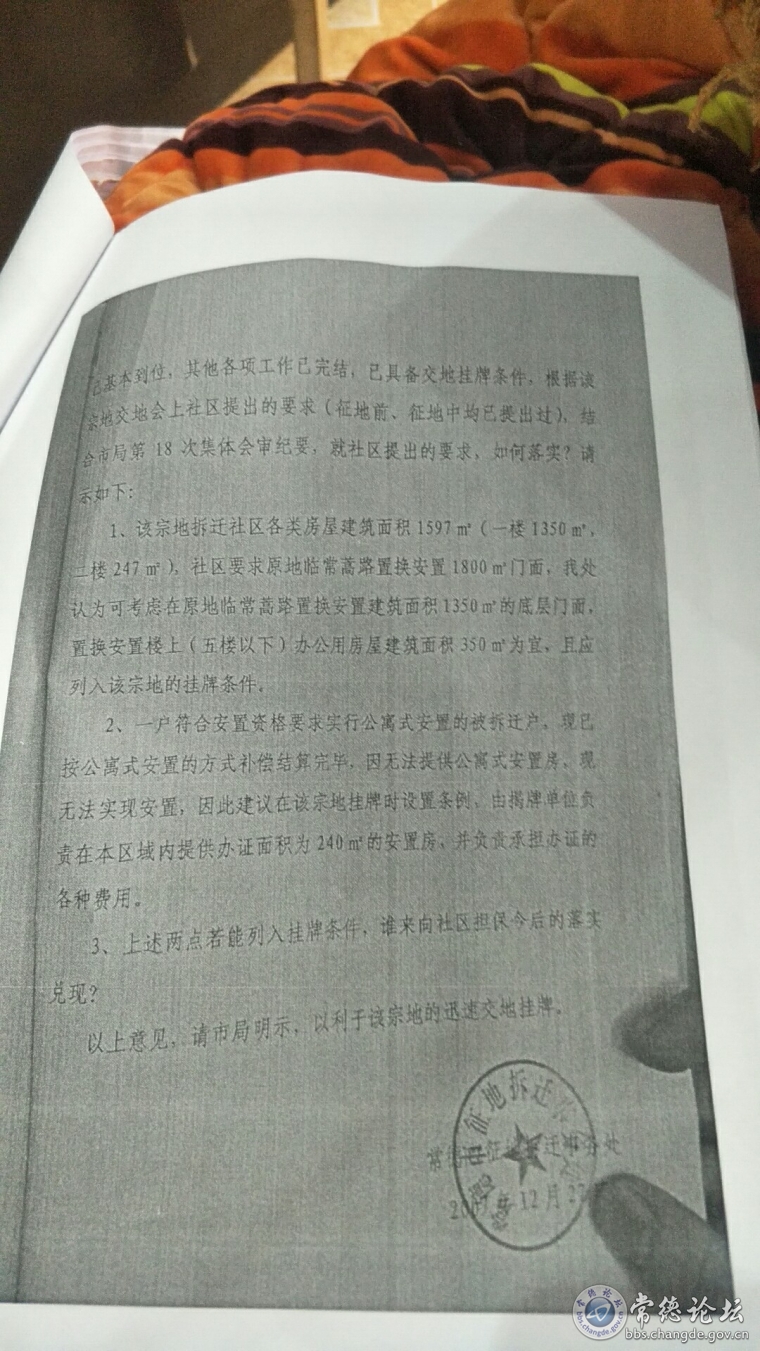 已基本到位，其他各项工作已完结，已具备交地挂牌条件，根据该
宗地交地会上社区提出的要求（征地前、征地中均已提出过），结
合市局第 18 次集体会审纪要，就社区提出的要求，如何落实？请
示如下：
1、该宗地拆迁社区各类房屋建筑面积 1597 ㎡（一楼 1350 ㎡，
二楼 247 ㎡），社区要求原地临常蒿路置换安置 1800 ㎡门面，我处
认为可考虑在原地临常蒿路置换安置建筑面积 1350 ㎡的底层门面，
置换安置楼上（五楼以下）办公用房屋建筑面积 350 ㎡为宜，且应
列入该宗地的挂牌条件。
2、一户符合安置资格要求实行公寓式安置的被拆迁户，现已
按公寓式安置的方式补偿结算完毕，因无法提供公寓式安置房，现
无法实现安置，因此建议在该宗地挂牌时设置条例，由揭牌单位负
责在本区域内提供办证面积为 240 ㎡的安置房，并负责承担办证的
各种费用。
3、上述两点若能列入挂牌条件，谁来向社区担保今后的落实
兑现？
以上意见，请市局明示，以利于该宗地的迅速交地挂牌。
征地拆迁
年 12 月
常德论坛
bbs.changde.gov.cn